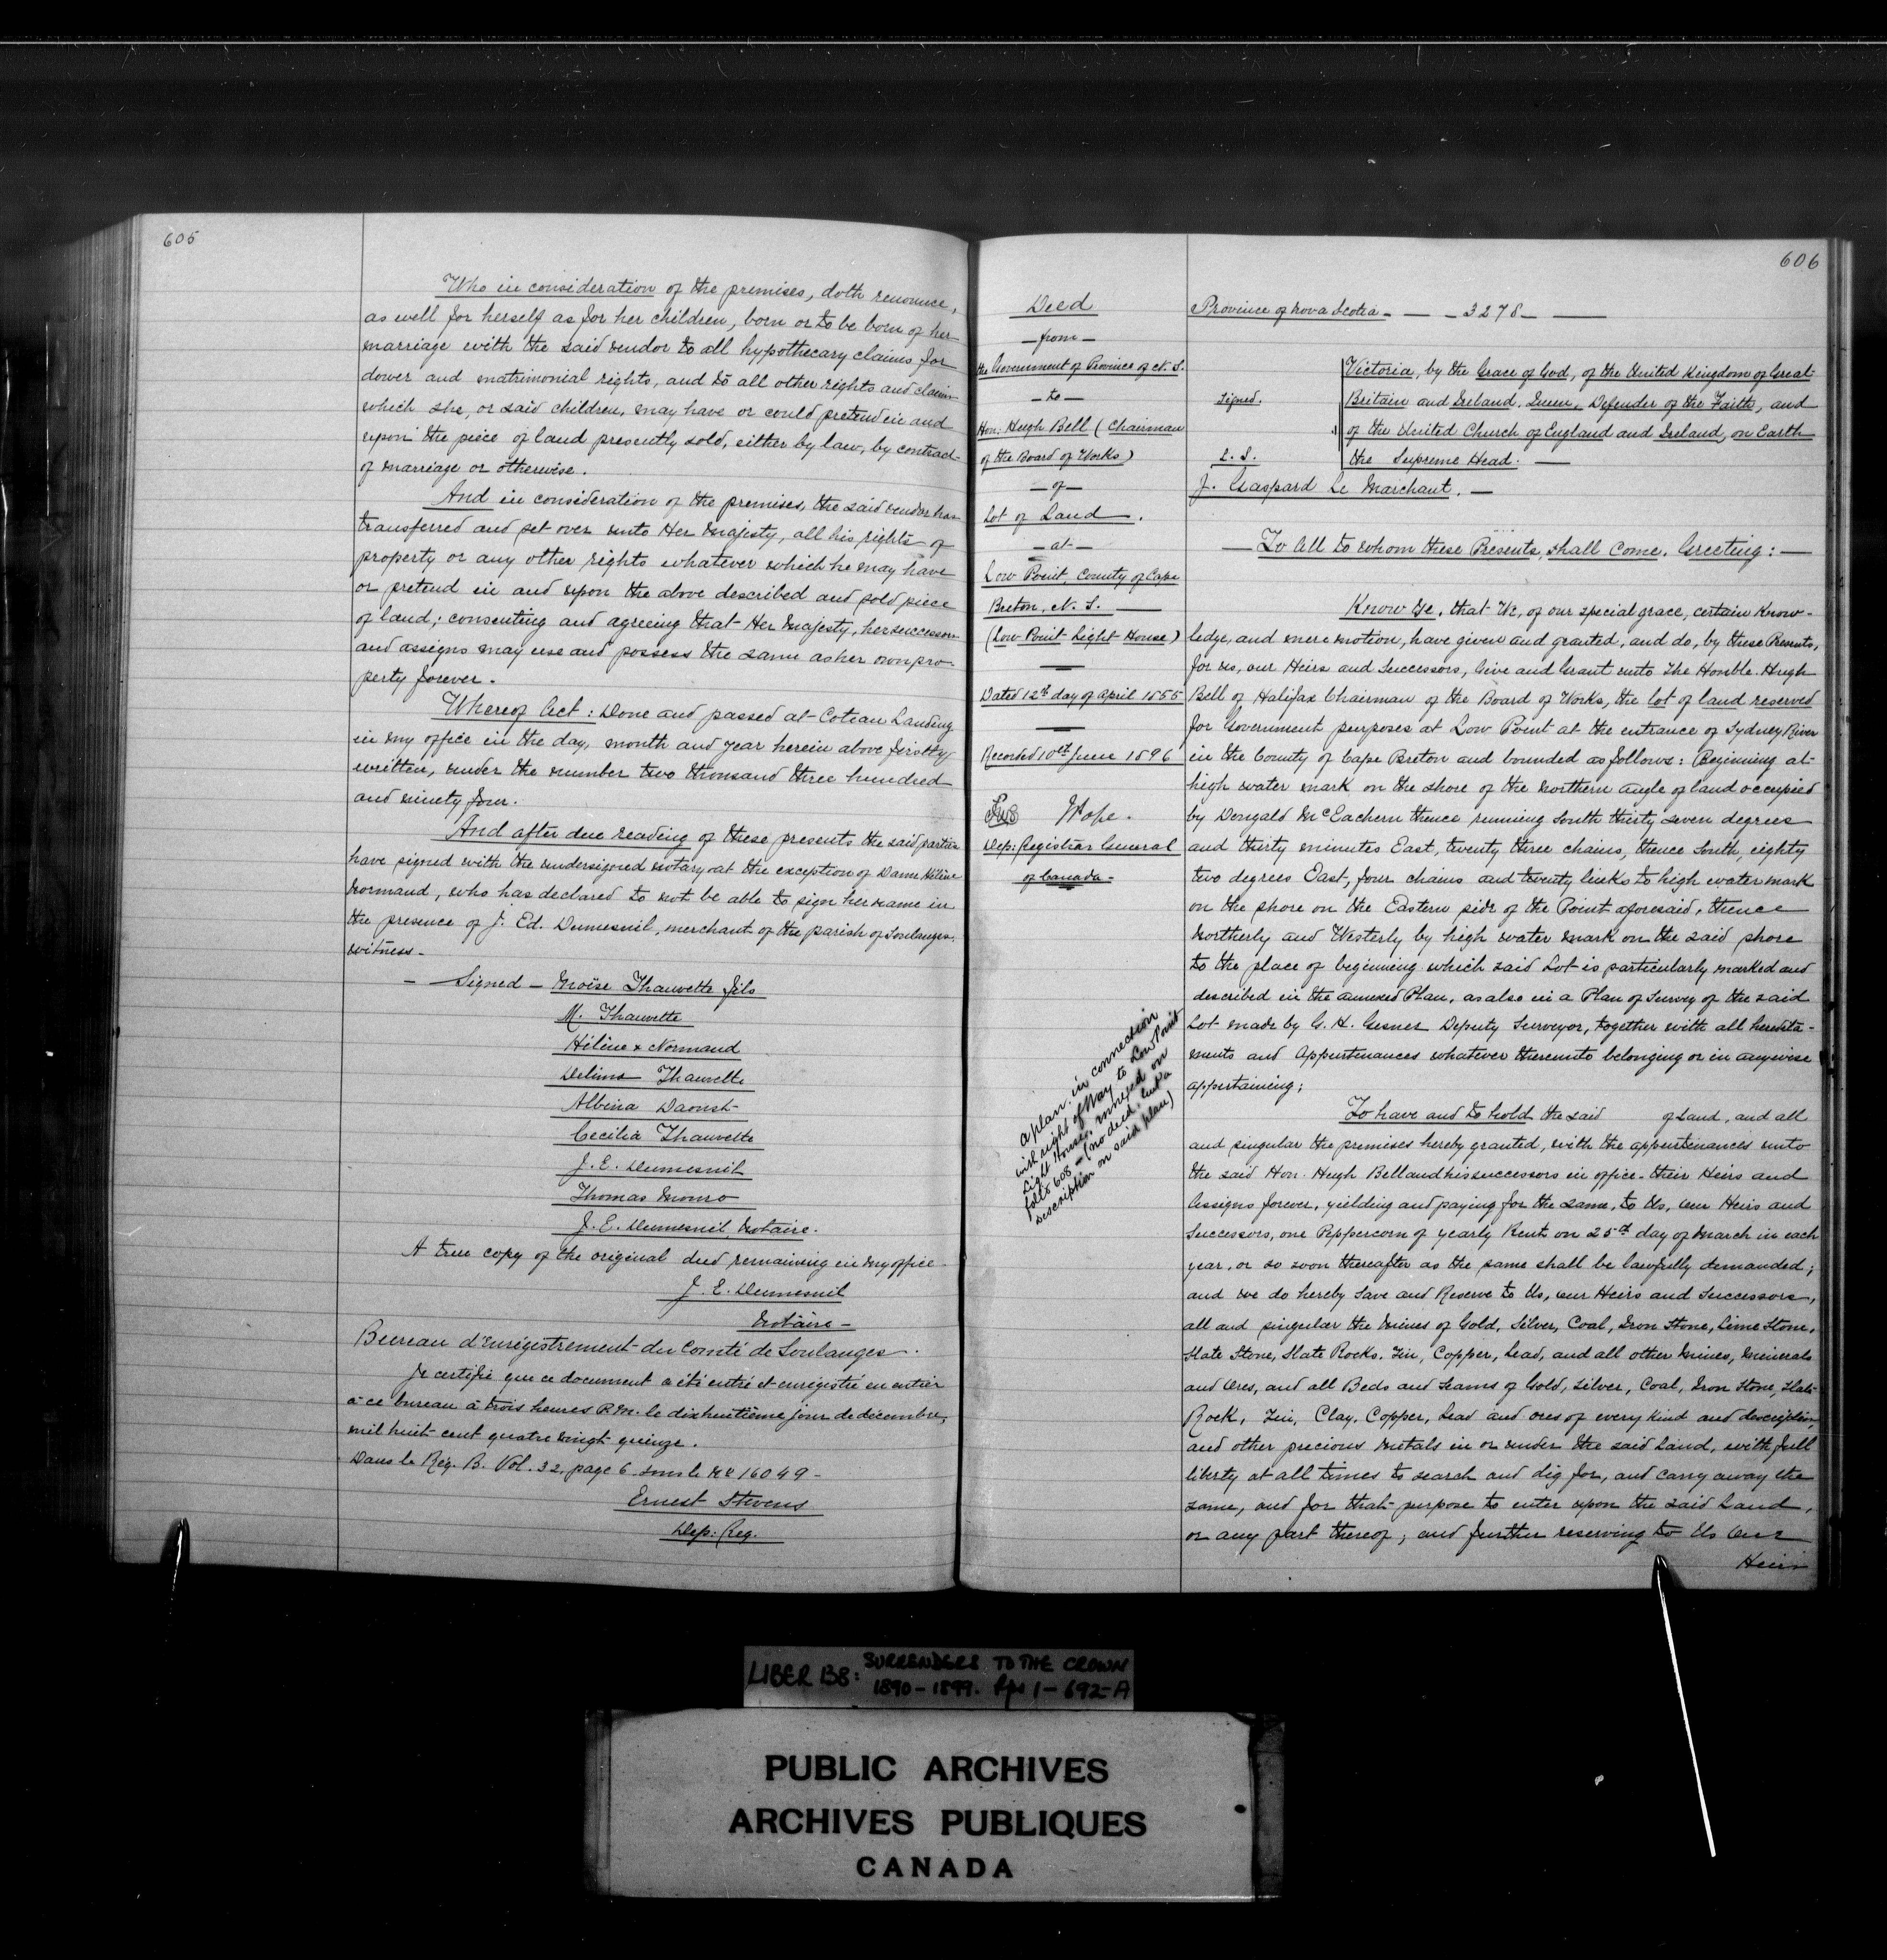 605
Who in consideration of the premises, doth renounce,
as well for herself as for her children, born or to be born of her
marriage with the said vendor to all hypothecary claims for
dower and matrimonial rights, and to all other rights and claims
which she, or said children, may have or could pretend in and
upon the piece of land presently sold, either by law, by contract
of marriage or otherwise.
And in consideration of the premises, the said vendor has
transferred and set over unto Her Majesty, all his rights of
property or any other rights whatever which he may have
or pretend in and upon the above described and sold piece
of land; consenting and agreeing that Her Majesty, her successors
and assigns may use and possess the same as her own pro-
perty forever.
Whereof Act: Done and passed at Coteau Landing
in my office in the day, month and year herein above firstly
written, under the number two thousand three hundred
and ninety four.
And after due reading of these presents the said parties
have signed with the undersigned notary at the exception of Dame Hélène
Normand, who has declared to not be able to sign her name in
the presence of J. Ed. Dumesnil, merchant of the parish of Soulanges.
witness -
- Signed - Moïse Thauvette fils
M. Thauvette
Hélène x Normand
Delima Thauvette
Albina Daoust
Cecilia Thauvette
J. E. Dumesnil
Thomas Monro
J. E. Dumesnil, Notaire.
A true copy of the original deed remaining in my office
J. E. Dumesnil
Notaire -
Bureau d'Enrégistrement du Comté de Soulanges.
Je certifie que ce document a été entré et enrégistré en entier
à ce bureau à trois heures P.M. le dixhuitième jour de décembre,
mil huit cent quatre vingt quinze.
Dans le Reg. B. Vol. 32, page 6 sous le No 16049 -
Ernest Stevens
Dep: Reg.
606
Deed
- from -
the Government of Province of N. S.
- to -
Hon: Hugh Bell (Chairman
of the Board of Works)
- of -
Lot of Land.
- at -
Low Point, County of Cape
Breton, N. S. -
(Low Point Light House)
Dated 12th day of April 1855
Recorded 10th June 1896
Pope.
Dep: Registrar General
of Canada -
A plan in connection
with right of Way to Low Point
Light House, annexed on
folio 608 - (no deed but a
description on said plan)
Province of Nova Scotia - - - 3278 - -
Signed.
L. S.
J. Gaspard Le Marchant. -
Victoria, by the Grace of God, of the United Kingdom of Great
Britain and Ireland, Queen, Defender of the Faith, and
of the United Church of England and Ireland, on Earth
the Supreme Head. -
- To All to whom these Presents, shall Come, Greeting: -
Know Ye, that We, of our special grace, certain Know-
ledge, and mere motion, have given and granted, and do, by these Presents,
for us, our Heirs and Successors, Give and Grant unto The Honble. Hugh
Bell of Halifax Chairman of the Board of Works, the lot of land reserved
for Government purposes at Low Point at the entrance of Sydney River
in the County of Cape Breton and bounded as follows: Beginning at
high water mark on the shore of the northern angle of land occupied
by Dongald McEachern thence running South thirty seven degrees
and thirty minutes East, twenty three chains, thence South, eighty
two degrees East, four chains and twenty links to high water mark
on the shore on the Eastern side of the Point aforesaid, thence
Northerly and Westerly by high water mark on the said shore
to the place of beginning which said Lot is particularly marked and
described in the annexed Plan, as also in a Plan of Survey of the said
Lot made by G. H. Gesner Deputy Surveyor, together with all heredita-
ments and Appurtenances whatever thereunto belonging or in anywise
appertaining;
To have and to hold the said of Land, and all
and singular the premises hereby granted, with the appurtenances unto
the said Hon. Hugh Bell and his successors in office - their Heirs and
Assigns forever, yielding and paying for the same, to Us, our Heirs and
Successors, one Peppercorn of yearly Rent on 25th day of March in each
year, or so soon thereafter as the same shall be lawfully demanded;
and we do hereby Save and Reserve to Us, our Heirs and Successors,
all and singular the Mines of Gold, Silver, Coal, Iron Stone, Lime Stone,
Slate Stone, Slate Rocks, Tin, Copper, Lead, and all other Mines, Minerals
and Ores, and all Beds and Seams of Gold, Silver, Coal, Iron Stone, Slate
Rock, Tin, Clay, Copper, Lead and ores of every kind and description,
and other precious metals in or under the said Land, with full
liberty at all times to search and dig for, and carry away the
same, and for that purpose to enter upon the said Land,
or any part thereof; and further reserving to Us Our
Heirs
LIBER 138: SURRENDERS TO THE CROWN
1890 - 1899. Pps 1 - 692-A
PUBLIC ARCHIVES
ARCHIVES PUBLIQUES
CANADA